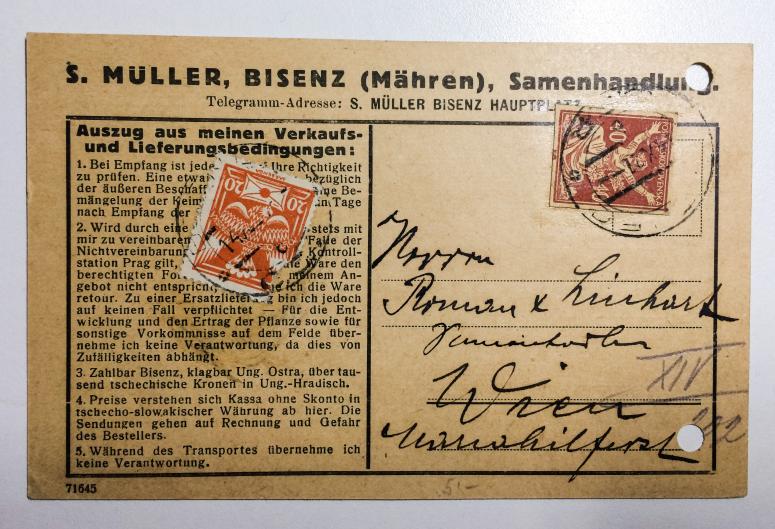 S. MÜLLER, BISENZ (Mähren), Samenhandlung.
Telegramm-Adresse: S. MÜLLER BISENZ HAUPTPLATZ
Auszug aus meinen Verkaufs-
und Lieferungsbedingungen:
1. Bei Empfang ist jede Ihre Richtigkeit
zu prüfen. Eine bezüglich
der äußeren Be-
mängelung der Tage
nach Empfang der
2. Wird durch stets mit
mir zu vereinbaren Falle der
Nichtvereinbarung Kontroll-
station Prag gilt, die Ware den
berechtigten meinem An-
gebot nicht ich die Ware
retour. Zu einer Ersatzlieferung bin ich jedoch
auf keinen Fall verpflichtet — Für die Ent-
wicklung und den Ertrag der Pflanze sowie für
sonstige Vorkommnisse auf dem Felde über-
nehme ich keine Verantwortung, da dies von
Zufälligkeiten abhängt.
3. Zahlbar Bisenz, klagbar Ung. Ostra, über tau-
send tschechische Kronen in Ung.-Hradisch.
4. Preise verstehen sich Kassa ohne Skonto in
tschecho-slowakischer Währung ab hier. Die
Sendungen gehen auf Rechnung und Gefahr
des Bestellers.
5. Während des Transportes übernehme ich
keine Verantwortung.
71645
20 20
40
Herren
Roman & Linhart
Wien
XIV
Mariahilferst 202
51-